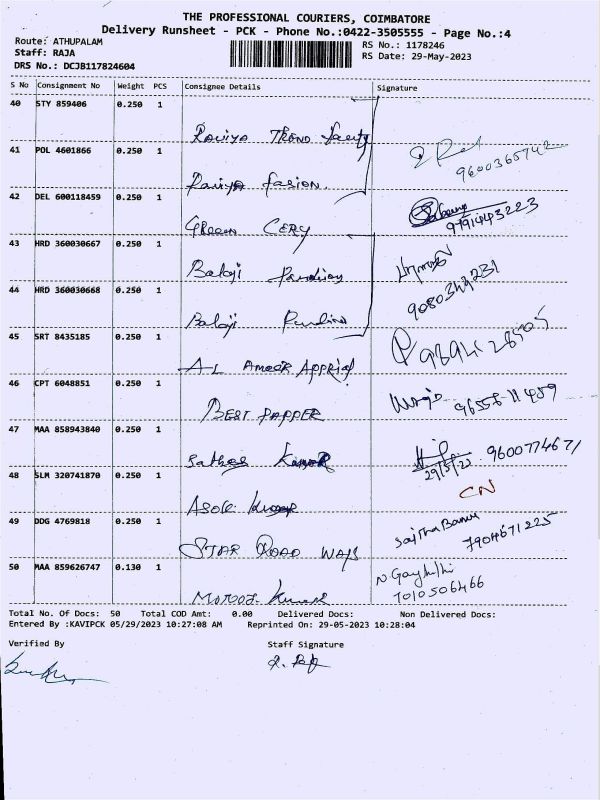 THE PROFESSIONAL COURIERS, COIMBATORE
Delivery Runsheet - PCK - Phone No.:0422-3505555 - Page No.:4
Route: ATHUPALAM
RS No.: 1178246
Staff: RAJA
RS Date: 29-May-2023
DRS No.: DCJB117824604
S No Consignment No Weight PCS Consignee Details Signature
40 STY 859406 0.250 1
41 POL 4601866 0.250 1
9600365742
Raviya Fasion.
42 DEL 600118459 0.250 1
9791443223
Green CERY
43 HRD 360030667 0.250 1
Balaji
44 HRD 360030668 0.250 1
9080349231
Balaji
45 SRT 8435185 0.250 1
A-L AMEER
46 CPT 6048851 0.250 1
BEST PAPPER
47 MAA 858943840 0.250 1
9600774671
Sathes Kumar
29/5/23
48 SLM 320741870 0.250 1
CN
Asok Kumar
49 DDG 4769818 0.250 1
Sajitha Banu
7904671225
STAR ROAD WAYS
50 MAA 859626747 0.130 1
N Gayathi
7010506466
Kumar
Total No. Of Docs: 50 Total COD Amt: 0.00 Delivered Docs: Non Delivered Docs:
Entered By :KAVIPCK 05/29/2023 10:27:08 AM Reprinted On: 29-05-2023 10:28:04
Verified By Staff Signature